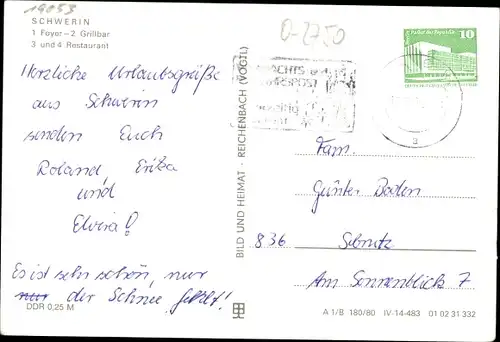 19053
SCHWERIN
1 Foyer – 2 Grillbar
3 und 4 Restaurant
0-2750
10
Herzliche Urlaubsgrüße
aus Schwerin
senden Euch
Roland, Erika
und
Elvira!
Es ist sehr schön, nur
nur der Schnee fehlt!
DDR 0,25 M
BILD UND HEIMAT · REICHENBACH (VOGTL)
Fam.
Günter Boden
836 Sebnitz
Am Sonnenblick 7
A 1/B 180/80 IV-14-483 01 02 31 332